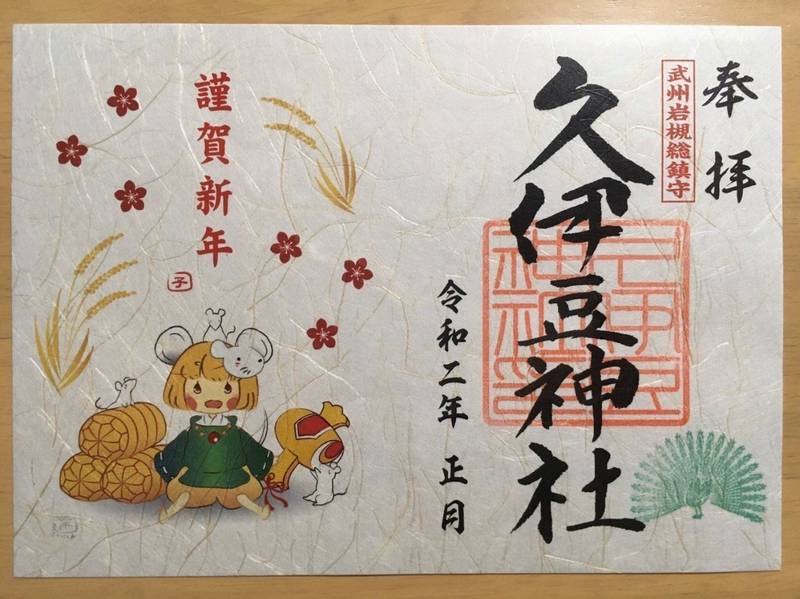 奉拝
武州岩槻総鎮守
久伊豆神社
令和二年 正月
謹賀新年
子